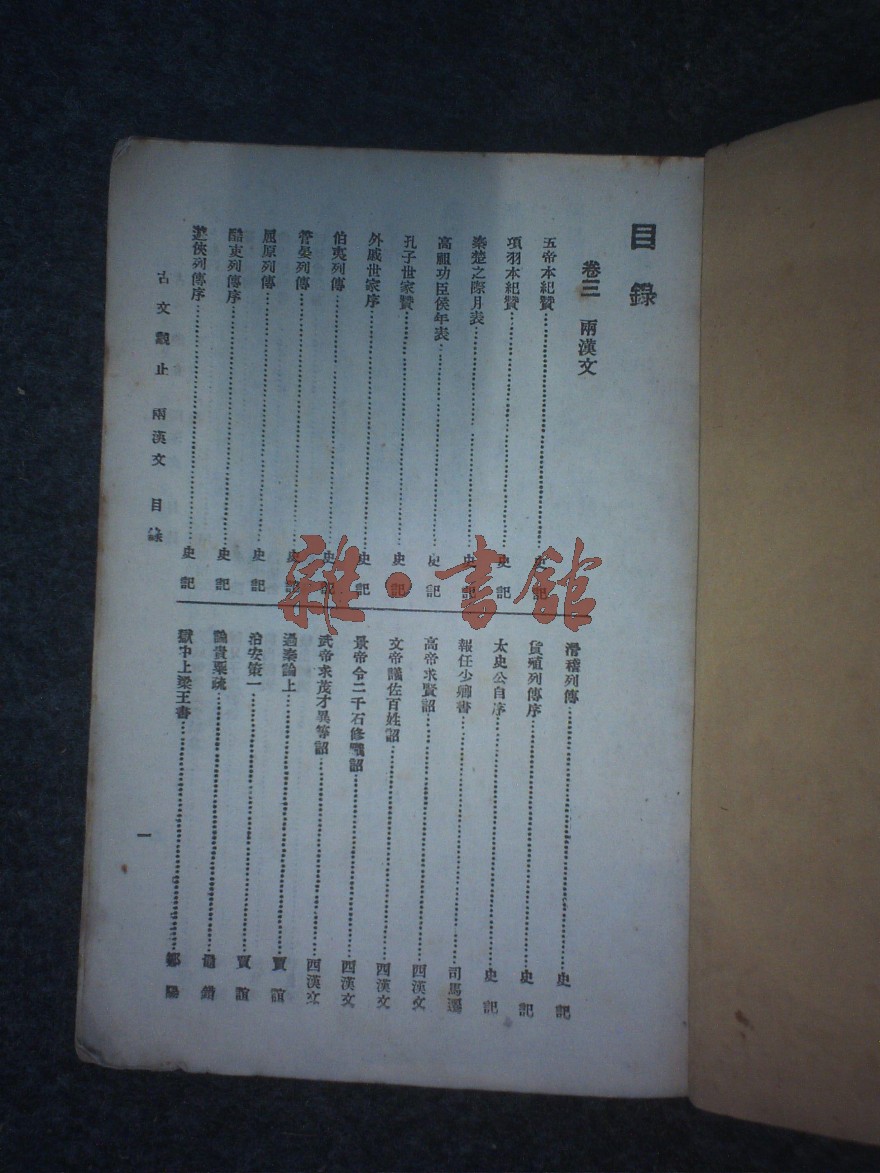 目錄
卷三 兩漢文
五帝本紀贊……史記
項羽本紀贊……史記
秦楚之際月表……史記
高祖功臣侯年表……史記
孔子世家贊……史記
外戚世家序……史記
伯夷列傳……史記
管晏列傳……史記
屈原列傳……史記
酷吏列傳序……史記
游俠列傳序……史記
滑稽列傳……史記
貨殖列傳序……史記
太史公自序……史記
報任少卿書……司馬遷
高帝求賢詔……西漢文
文帝議佐百姓詔……西漢文
景帝令二千石修職詔……西漢文
武帝求茂才異等詔……西漢文
過秦論上……賈誼
治安策一……賈誼
論貴粟疏……鼂錯
獄中上梁王書……鄒陽
古文觀止 兩漢文 目錄
一
雜·書館